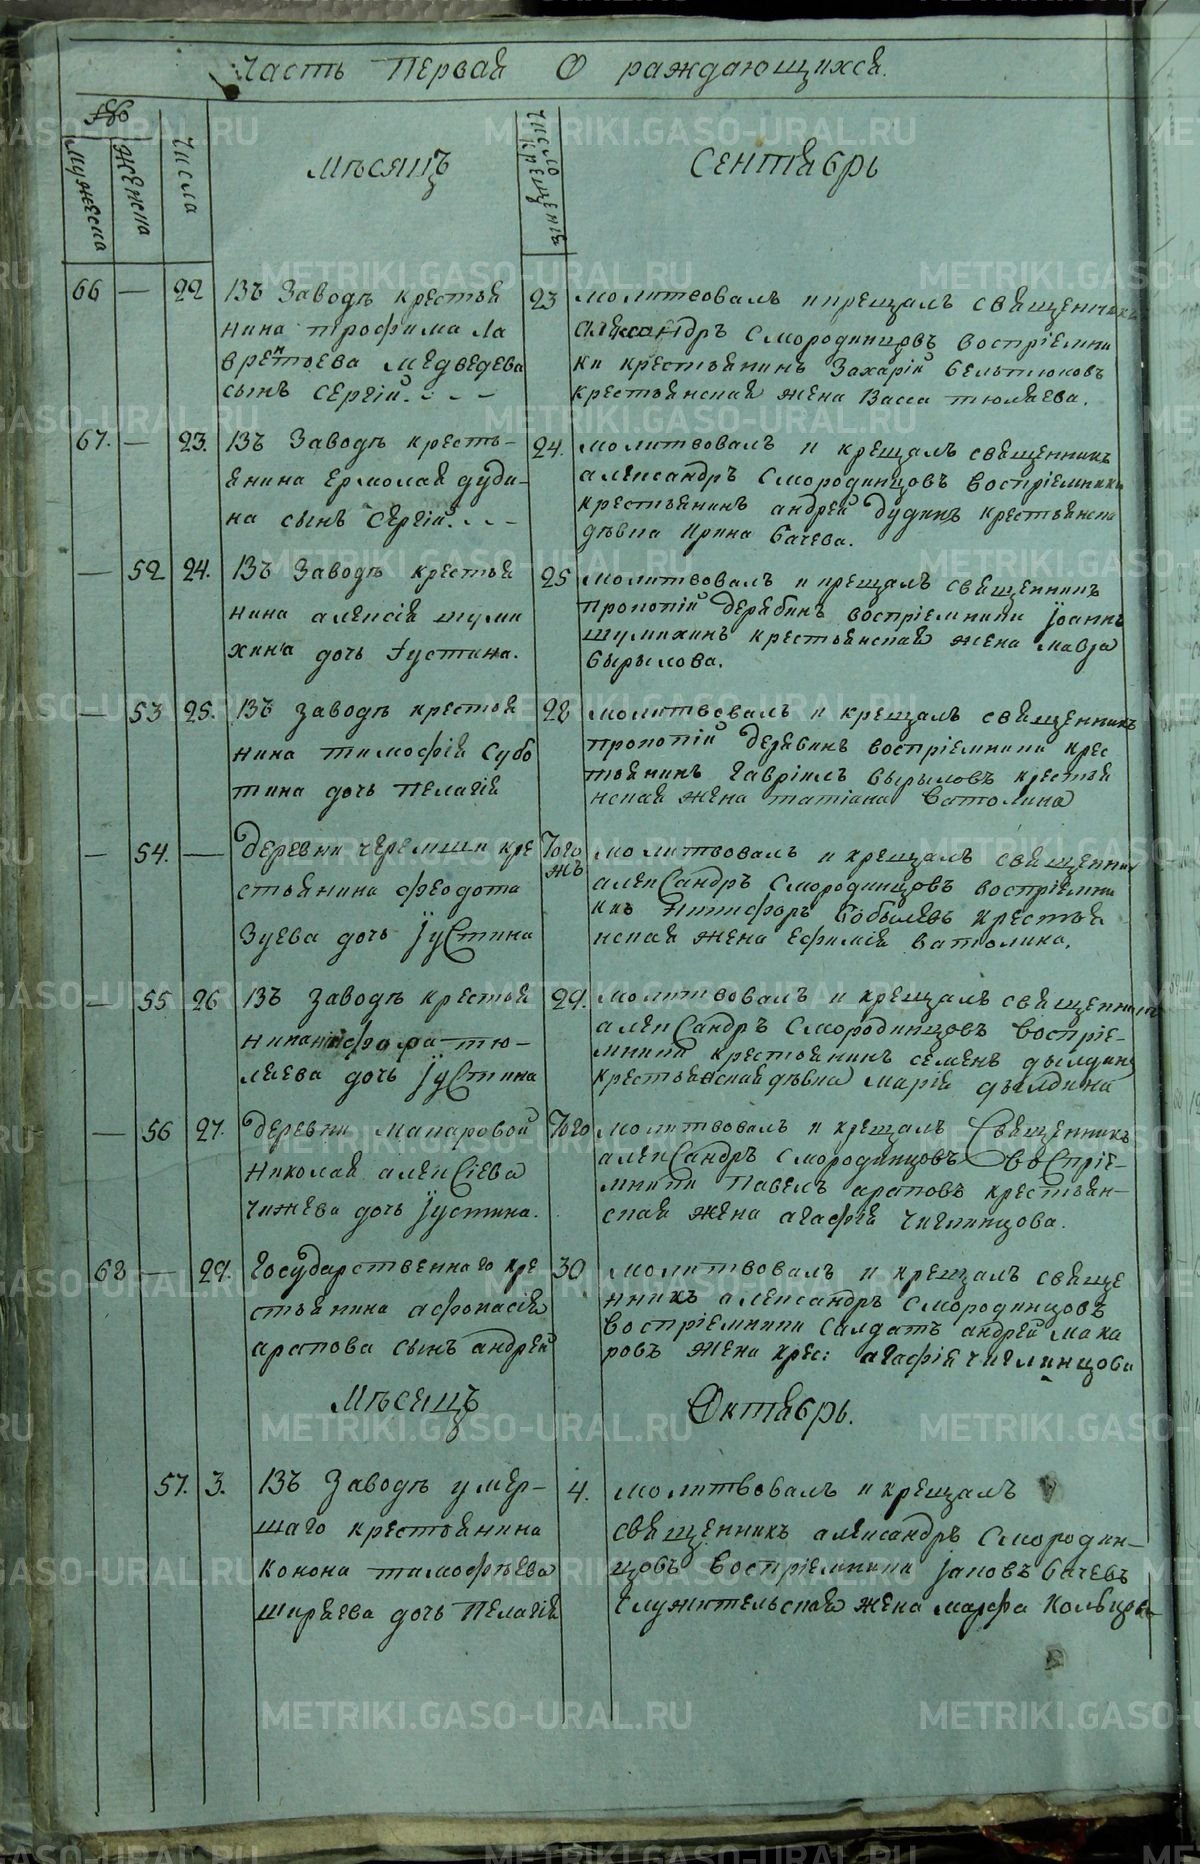 Часть Первая О раждающихся.
№
мужеска
женска
числа
мѣсяцъ
число крещенія
Сентябрь
66 — 22 Изъ Заводѣ крестья
нина трофима Ла
врентьева Медведева
сынъ Сергій. - - -
23 молитвовалъ и крещалъ священникъ
Александръ Смородинцовъ воспріемни
ки крестьянинъ Захарій
крестьянская жена Васса тюляева.
67. — 23. Изъ Заводѣ кресть-
янина Ермолая дуди-
на сынъ Сергій. - - -
24. молитвовалъ и крещалъ священникъ
александръ Смородинцовъ воспріемники
крестьянинъ андрей Дудинъ крестьянска
дѣвка Ирина бачева.
— 52 24. Изъ Заводѣ крестья
нина алексія шуми
хина дочь Iустина.
25 молитвовалъ и крещалъ священникъ
прокопій дерябинъ воспріемники Iоаннъ
шумихинъ крестьянская жена мавра
вырылова.
— 53 25. Изъ заводѣ крестья
нина тимофія Субо
тина дочь Пелагія
28 молитвовалъ и крещалъ священникъ
прокопій дерябинъ воспріемники крес
тьянинъ гавріилъ вырыловъ крестья
нская жена татіана ватолина
— 54. — деревни черемши кре
стьянина феодота
Зуева дочь Iустина
Того
жъ
молитвовалъ и крещалъ священник
алексанДръ Смородинцовъ воспріемни
ки Никифоръ бобылевъ крестья
нская жена ефимія ватолина.
— 55 26 Изъ заводѣ крестья
нина тю-
ляева дочь Iустина
29. молитвовалъ и крещалъ священникъ
александръ Смородинцовъ воспріе-
мники крестьянинъ семенъ дылдинъ
крестьянская дѣвка марія дылдина
— 56 27. деревни макаровой
Николая алексіева
чижева дочь Iустина.
Того
молитвовалъ и крещалъ Священникъ
александръ Смородинцовъ воспріе-
мники Павелъ араповъ крестьян-
ская жена агафія чиглинцова.
68 — 29. Государственнаго кре
стьянина афонасія
арапова сынъ андрей
30 молитвовалъ и крещалъ свяще
нникъ александръ Смородинцовъ
воспріемники Салдатъ андрей мака
ровъ жена крес: агафія чиглинцова
Мѣсяцъ
Октябрь.
57. 3. Изъ Заводѣ умер-
шаго крестьянина
Конона тимофѣева
ширяева дочь Пелагія
4. молитвовалъ и крещалъ
священникъ александръ Смородин-
цовъ воспріемники Iаковъ бачевъ
Служительская жена марфа Кольцова
METRIKI.GASO-URAL.RU